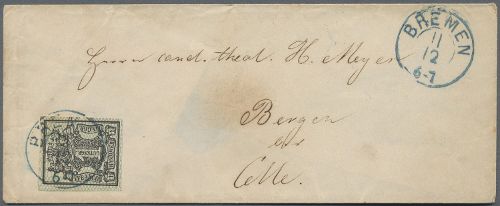 BREMEN
11
12
6-7
Herrn cand. theol. H. Meyer
Bergen
bei
Celle.